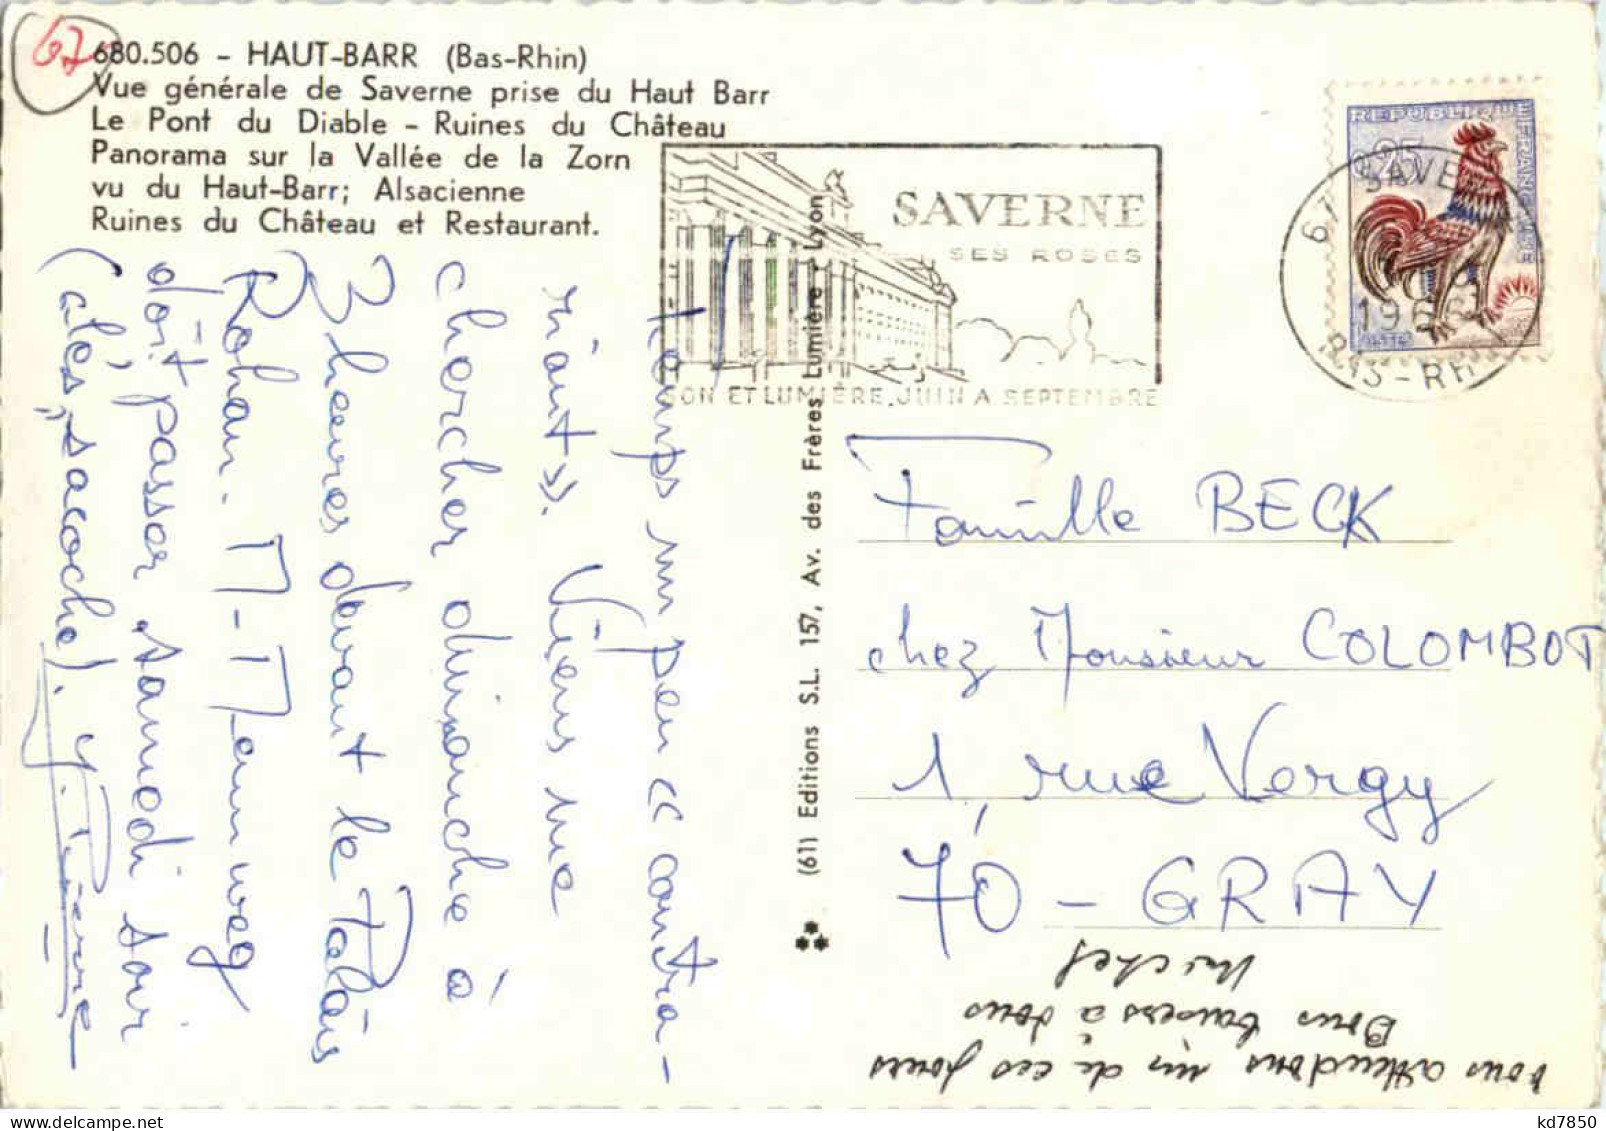 67
680.506 - HAUT-BARR (Bas-Rhin)
Vue générale de Saverne prise du Haut Barr
Le Pont du Diable - Ruines du Château
Panorama sur la Vallée de la Zorn
vu du Haut-Barr; Alsacienne
Ruines du Château et Restaurant.
SAVERNE
SES ROSES
SON ET LUMIÈRE, JUIN A SEPTEMBRE
REPUBLIQUE FRANÇAISE
0,25
POSTES
67 SAVERNE
BAS-RHIN
(61) Editions S.L. 157, Av. des Frères Lumière - Lyon
temps un peu « contra-
riant ». Viens me
chercher dimanche à
3 heures devant le Palais
Rohan. M-
doit passer samedi soir
(clés, "sacoche). Y. Pierre
Famille BECK
chez Monsieur COLOMBOT
1, rue Vergy
70 - GRAY
Vous attendons un de ces jours
Bons baisers à tous
Michel
kd7850